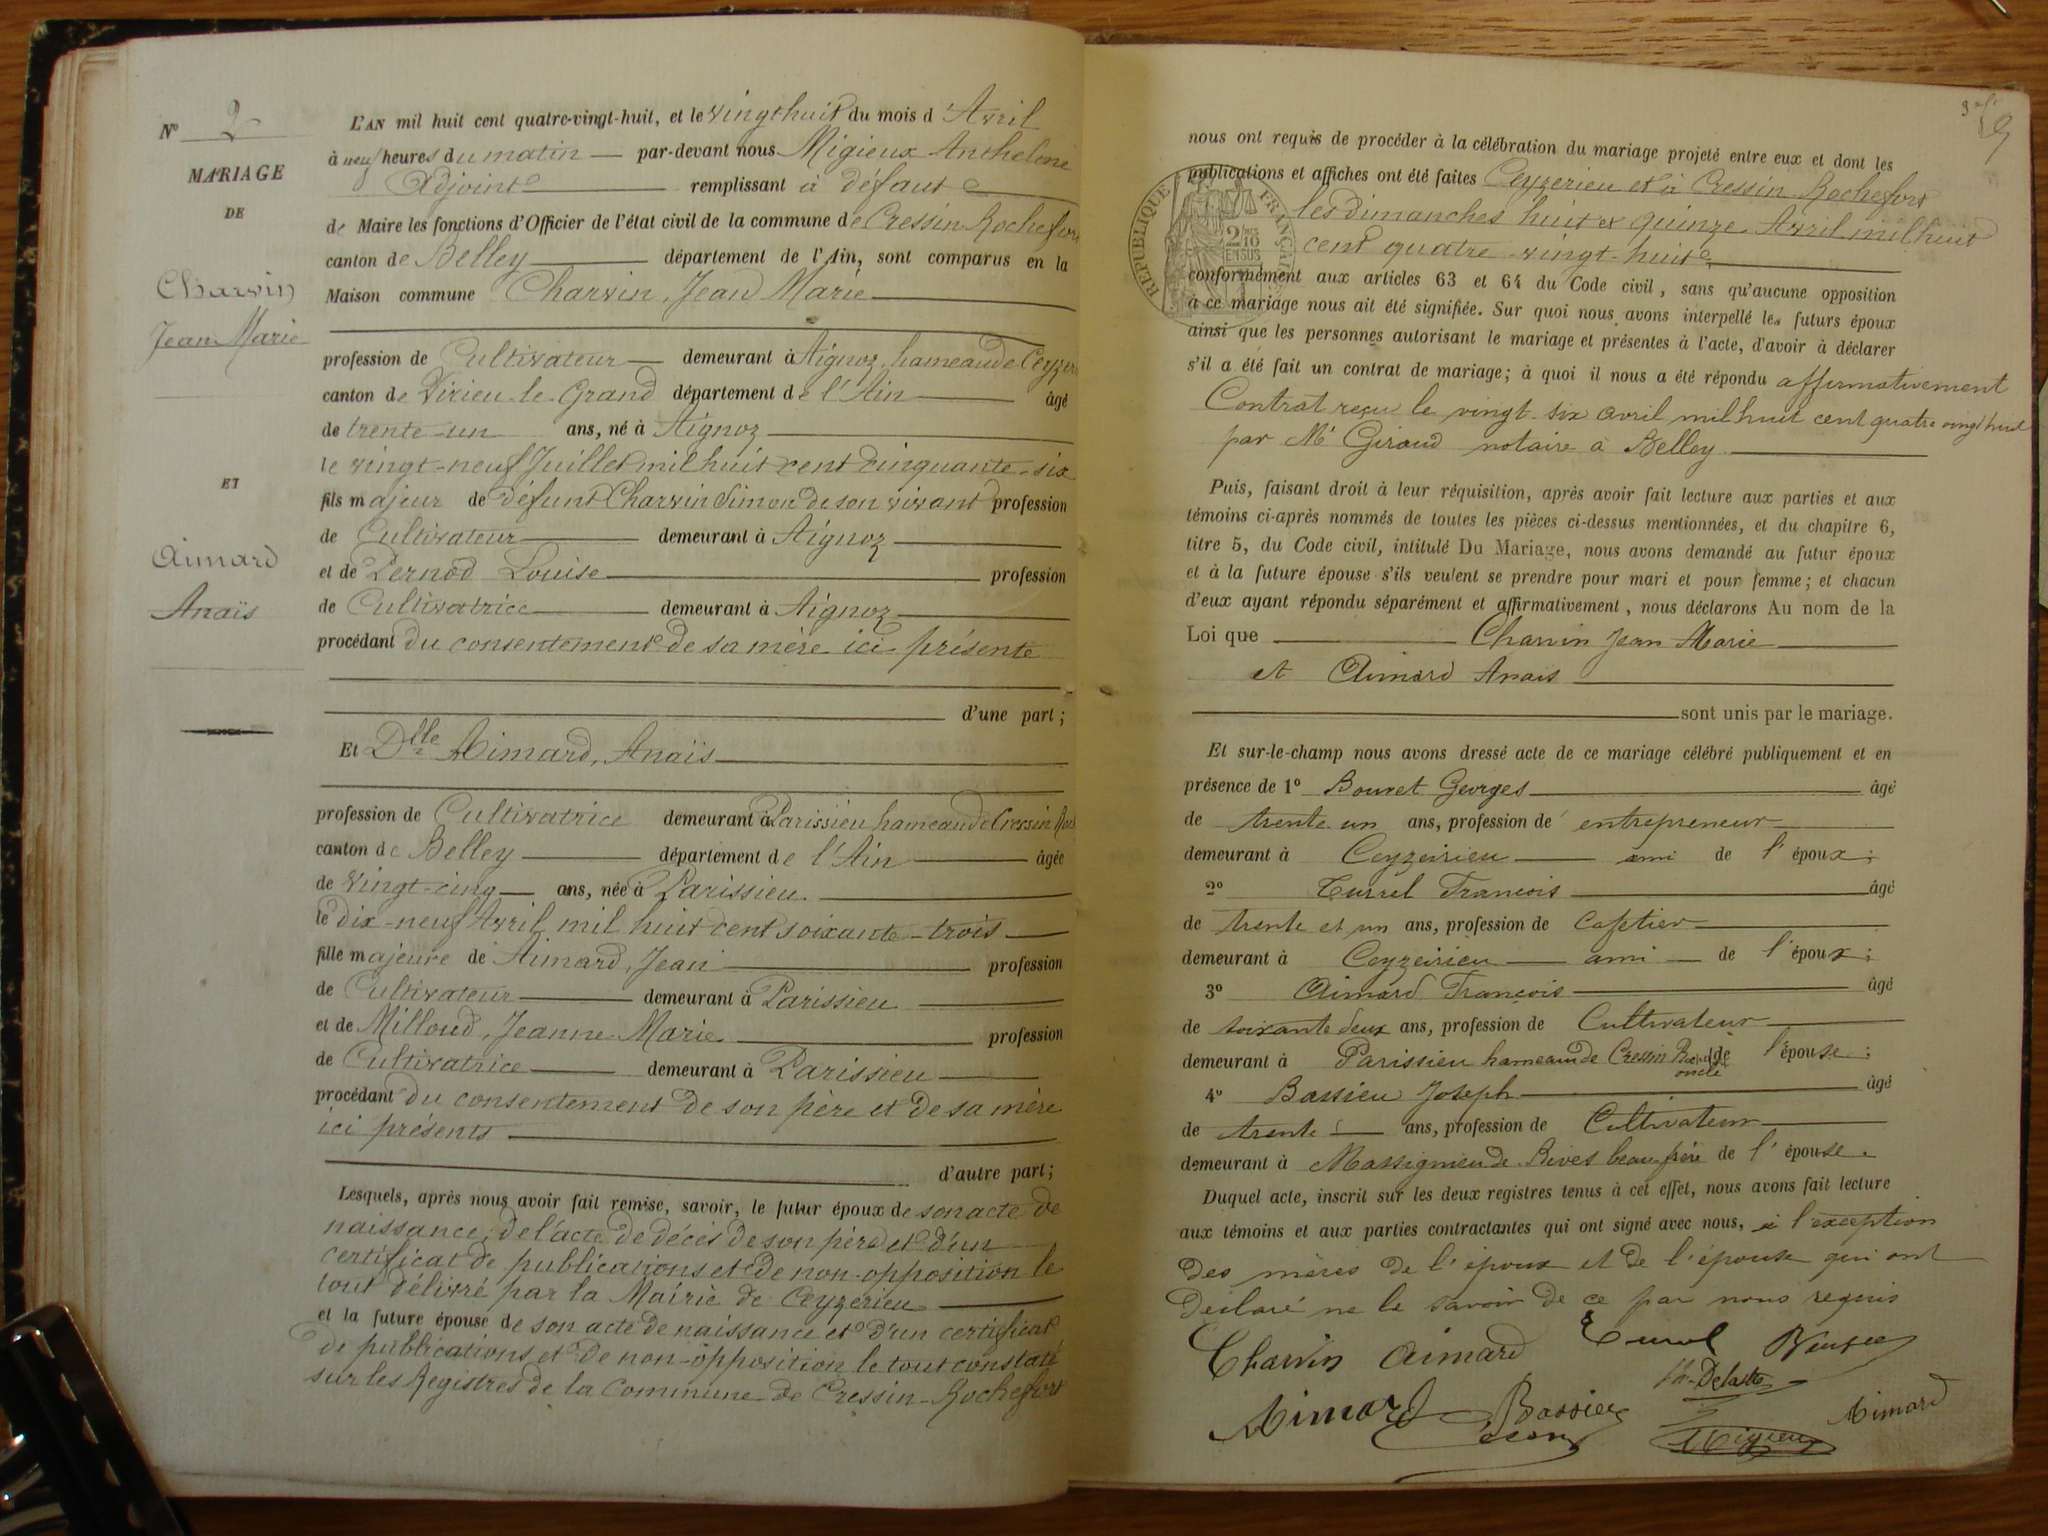 N° 2
MARIAGE
DE
Charvin
Jean Marie
ET
Aimard
Anaïs
L'AN mil huit cent quatre-vingt-huit, et le vingt huit du mois d'Avril
à neuf heures du matin par-devant nous Migieux Anthelme
Adjoint remplissant à défaut
de Maire les fonctions d'Officier de l'état civil de la commune de Cressin Rochefort
canton de Belley département de l'Ain, sont comparus en la
Maison commune Charvin, Jean Marie
profession de Cultivateur demeurant à Aignoz, hameau de Ceyzeri
canton de Virieu-le-Grand département de l'Ain âgé
de trente-un ans, né à Aignoz
le vingt-neuf Juillet mil huit cent cinquante-six
fils majeur de défunt Charvin Simon de son vivant profession
de Cultivateur demeurant à Aignoz
et de Pernod Louise profession
de Cultivatrice demeurant à Aignoz
procédant du consentement de sa mère ici présente
d'une part;
Et Dlle Aimard, Anaïs
profession de Cultivatrice demeurant à Parissieu hameau de Cressin Roch
canton de Belley département de l'Ain âgée
de vingt-cinq ans, née à Parissieu
le dix-neuf Avril mil huit cent soixante-trois
fille majeure de Aimard, Jean profession
de Cultivateur demeurant à Parissieu
et de Milloud, Jeanne-Marie profession
de Cultivatrice demeurant à Parissieu
procédant du consentement de son père et de sa mère
ici présents
d'autre part;
Lesquels, après nous avoir fait remise, savoir, le futur époux de son acte de
naissance, de l'acte de décès de son père et d'un
certificat de publications et de non-opposition le
tout délivré par la Mairie de Ceyzerieu
et la future épouse de son acte de naissance et d'un certificat
de publications et de non-opposition le tout constaté
sur les Registres de la Commune de Cressin-Rochefort
nous ont requis de procéder à la célébration du mariage projeté entre eux et dont les
publications et affiches ont été faites Ceyzerieu et à Cressin-Rochefort
les dimanches huit et quinze Avril mil huit
cent quatre-vingt-huit
RÉPUBLIQUE FRANÇAISE
2/10 EN SUS
conformément aux articles 63 et 64 du Code civil, sans qu'aucune opposition
à ce mariage nous ait été signifiée. Sur quoi nous avons interpellé les futurs époux
ainsi que les personnes autorisant le mariage et présentes à l'acte, d'avoir à déclarer
s'il a été fait un contrat de mariage; à quoi il nous a été répondu affirmativement
Contrat reçu le vingt-six avril mil huit cent quatre vingt huit
par Me Giroud notaire à Belley
Puis, faisant droit à leur réquisition, après avoir fait lecture aux parties et aux
témoins ci-après nommés de toutes les pièces ci-dessus mentionnées, et du chapitre 6,
titre 5, du Code civil, intitulé Du Mariage, nous avons demandé au futur époux
et à la future épouse s'ils veulent se prendre pour mari et pour femme; et chacun
d'eux ayant répondu séparément et affirmativement, nous déclarons Au nom de la
Loi que Charvin Jean Marie
et Aimard Anaïs
sont unis par le mariage.
Et sur-le-champ nous avons dressé acte de ce mariage célébré publiquement et en
présence de 1° Bouvet Georges âgé
de trente un ans, profession de entrepreneur
demeurant à Ceyzeirieu ami de l'époux;
2° Turrel François âgé
de trente et un ans, profession de cafetier
demeurant à Ceyzeirieu ami de l'époux;
3° Aimard François âgé
de soixante deux ans, profession de Cultivateur
demeurant à Parissieu hameau de Cressin Rochefort oncle de l'épouse;
4° Bassieu Joseph âgé
de trente ans, profession de Cultivateur
demeurant à Massignieu de Rives beau-frère de l'épouse.
Duquel acte, inscrit sur les deux registres tenus à cet effet, nous avons fait lecture
aux témoins et aux parties contractantes qui ont signé avec nous, à l'exception
des mères de l'époux et de l'épouse qui ont
déclaré ne le savoir de ce par nous requis
Charvin Aimard Turrel
Aimard Bassieu Aimard
Migieux